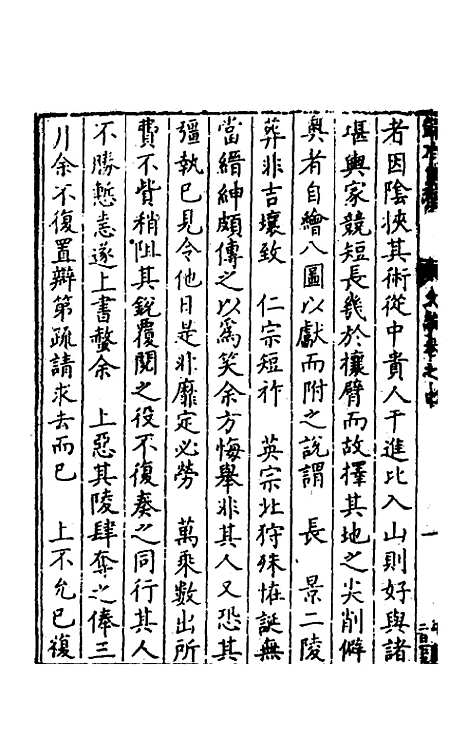 者因陰挾其術從中貴人干進比入山則好與諸
堪輿家競短長幾於攘臂而故擇其地之尖削僻
奧者自繪八圖以獻而附之說謂　長　景二陵
葬非吉壤致　仁宗短祚　英宗北狩殊恠誕無
當縉紳頗傳之以爲笑余方悔舉非其人又恐其
彊執已見令他日是非靡定必勞　萬乘數出所
費不貲稍阻其銳覆閱之役不復奏之同行其人
不勝慙恚遂上書螫余　上惡其陵肆奪之俸三
月余不復置辯第疏請求去而已　上不允已復